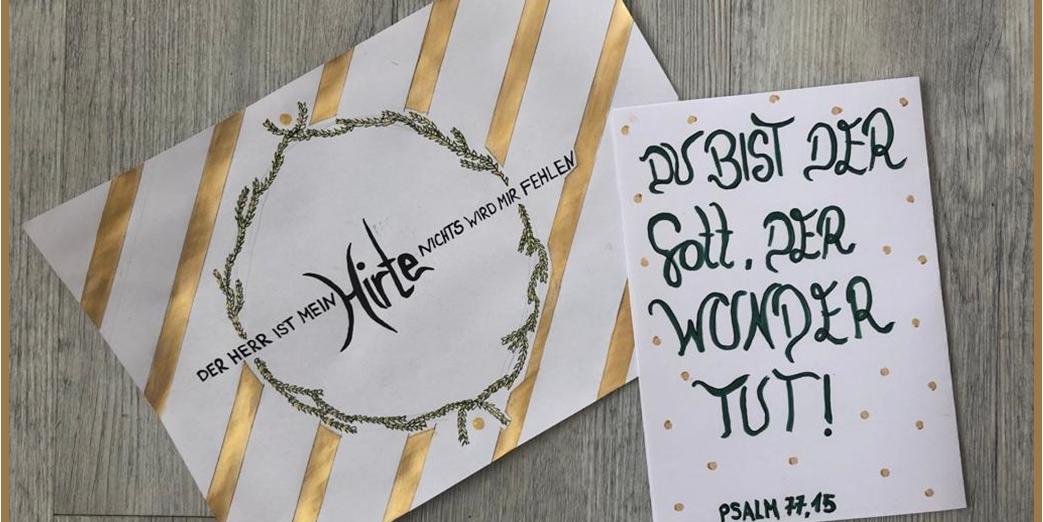 DER HERR IST MEIN Hirte NICHTS WIRD MIR FEHLEN
DU BIST DER
Gott, DER
WUNDER
TUT!
PSALM 77,15